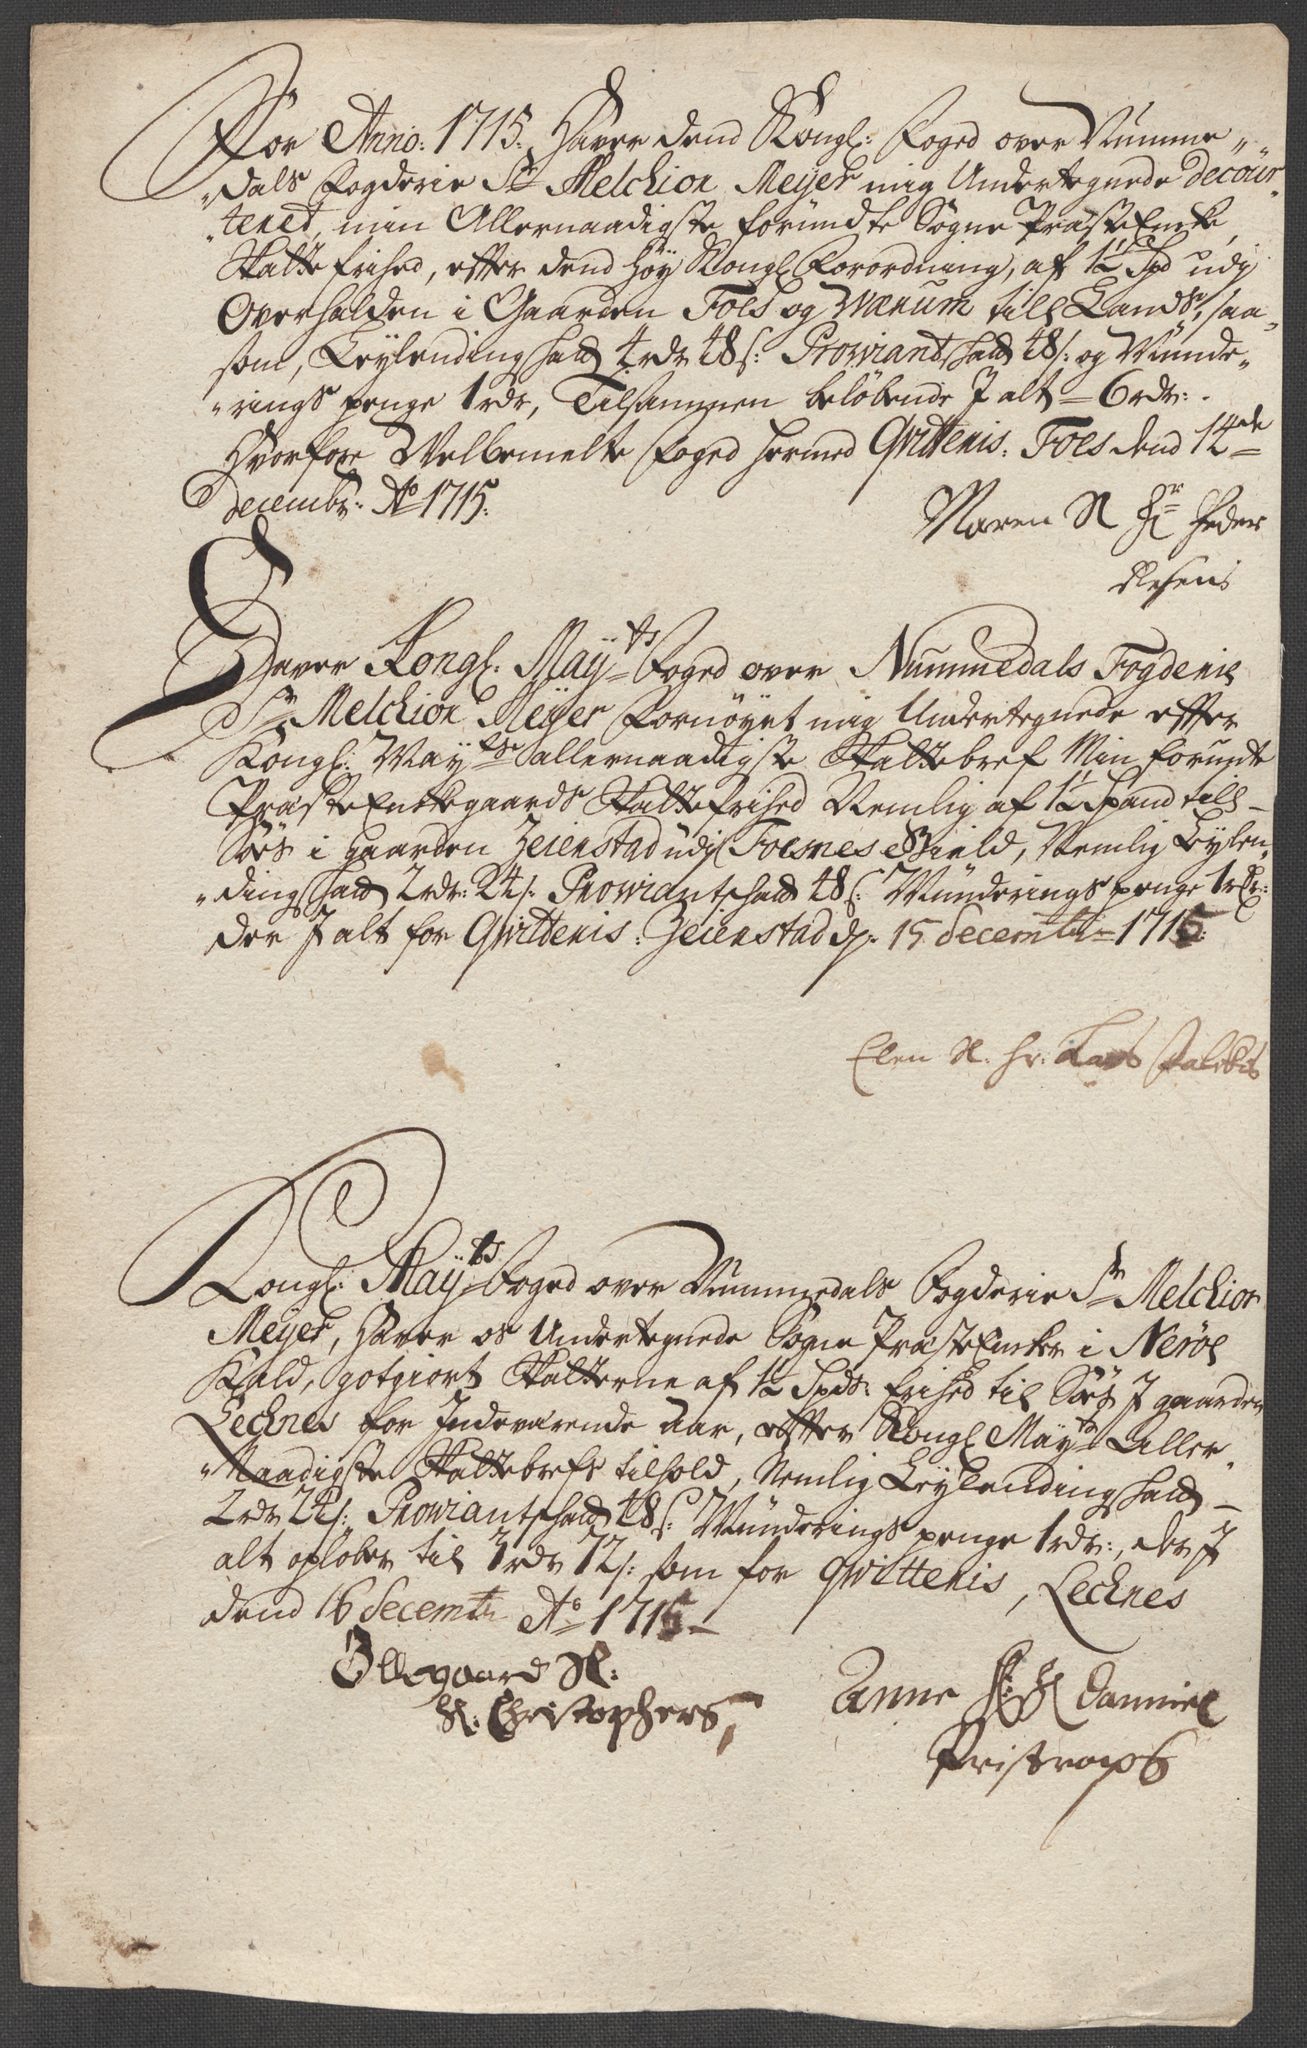 For Anno: 1715. Haver dend Kongl: Foged over Numme„
„dals Fogderie Sr Melchior Meyer mig Undertegnede decour„
„teret, min Allernaadigste forundte Sogne Præste Enke
Skatte frihed, efter dend høy Kongl Forordning, af 1½ Spd udj
Overhalden i Gaarden Foes og Wærum till Lands, saa„
som, Leylending skatt 4 rdr 48 s: Prowiant skatt 48 s: og Munde„
„rings penge 1 rdr, Tilsammen beløbende J alt – 6 rdr:.
Hvorfore Velbemelte Foged hermed Qvitteris: Foes dend 14de
decembr: Ao 1715.
Maren Sl Hr Peder
Haver Kongl: Mayts Foged over Nummedals Fogderie
Sr Melchior Meyer fornøyet mig Undertegnede efter
Kongl: Mayts allernaadigste Skattebref Min forundte
Præste Enkegaards Skatte frihed Nemlig af 1½ Spand till –
Sæs i gaarden Zeierstad udj Foesnes Gield, Nemlig Leylen„
„ding skatt 2 rdr: 24 s: Prowiant skatt 48 s: Munderings penge 1 rdr:
der J alt for Qvitteris: Zeierstad dj. 15 decembr 1715.
Elen Sl. Hr: Lars
Kongl: Mayts Foged over Nummedals Fogderie Sr Melchior
Meyer, Haver os Undertegnede Sogne Præste Encker i Nerøe
Kald, gotgiort Skatterne af 1½ Spds: frihed til Sæs J gaarden
Lecknes for Indeværende Aar, efter Kongl Mayts Aller„
„Naadigste Skattebrefs tilhold, Nemlig Leylending skatt –
2 rdr 24 s: Prowiant skatt 48 s: Munderings penge 1 rdr:, der J
alt opløber til 3 rdr 72 s: som for qwitteris, Lecknes
dend 16 decembr Ao 1715 –
Ollegaard Sl:
H: Christophers,
Anne Sl: H Danniel
Pristrops